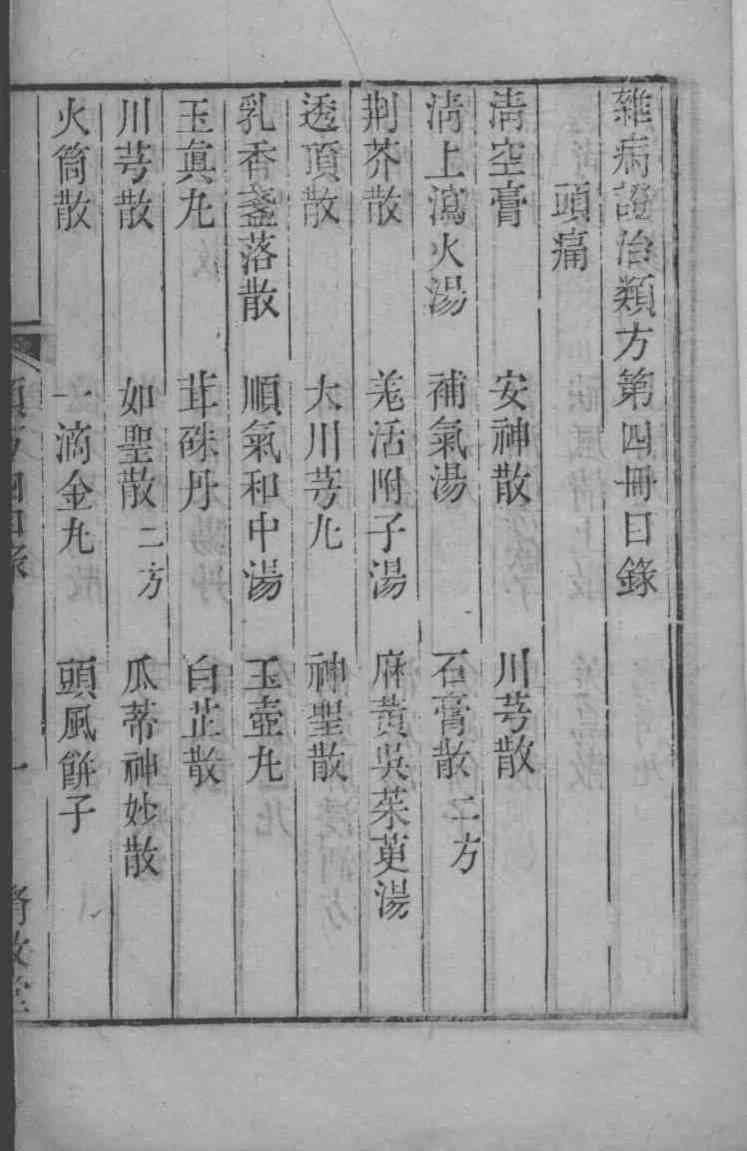 雜病證治類方第四冊目錄
頭痛
淸空膏 安神散 川芎散
淸上瀉火湯 補氣湯 石膏散二方
荆芥散 羌活附子湯 麻黃吳茱萸湯
透頂散 大川芎丸 神聖散
乳香盞落散 順氣和中湯 玉壺丸
玉眞丸 茸硃丹 白芷散
川芎散 如聖散二方 瓜蒂神妙散
火筒散 一滴金丸 頭風餅子
一